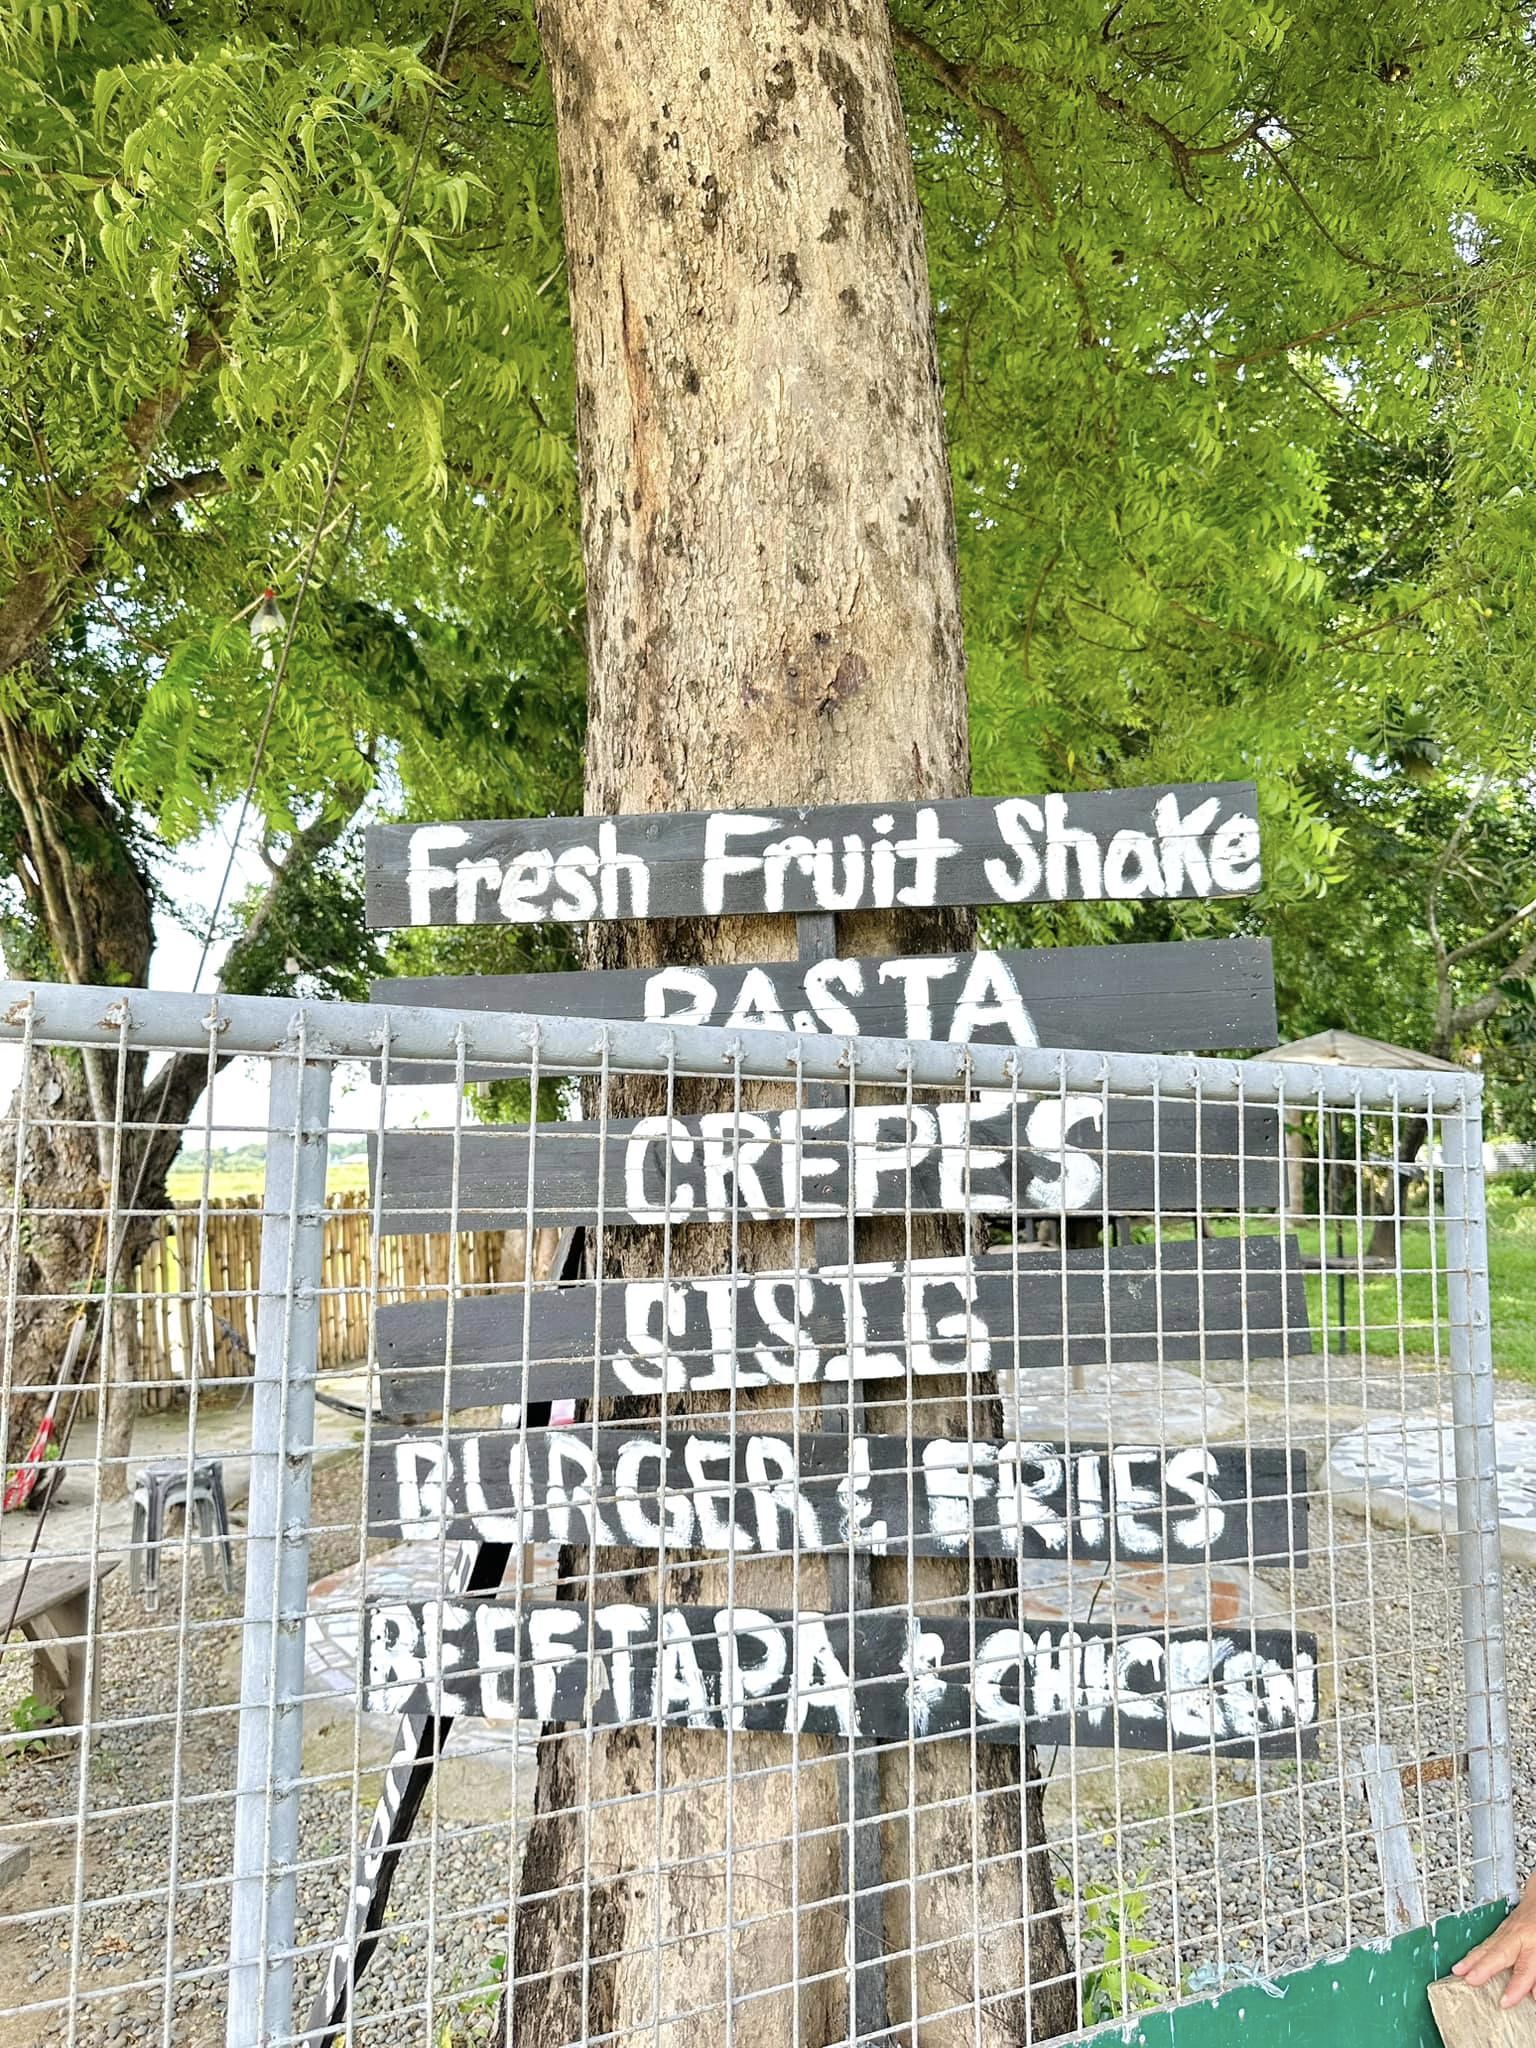 Fresh Fruit Shake
PASTA
CREPES
SISIG
BURGER & FRIES
BEEF TAPA & CHICKEN